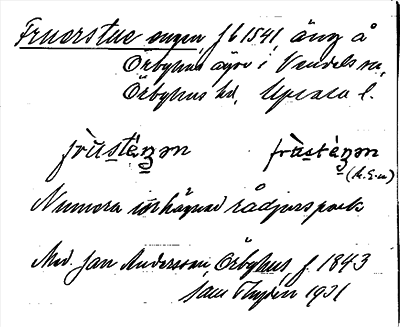 Fruerstue engen, f 6 1541, äng å
Örbyhus ägor i Vendels sn,
Örbyhus hd, Upsala l.
frùsténən frùsténən
(k.G.u)
Numera inhägnad rådjurspark
Med. Jan Andersson, Örbyhus, f. 1843
1931